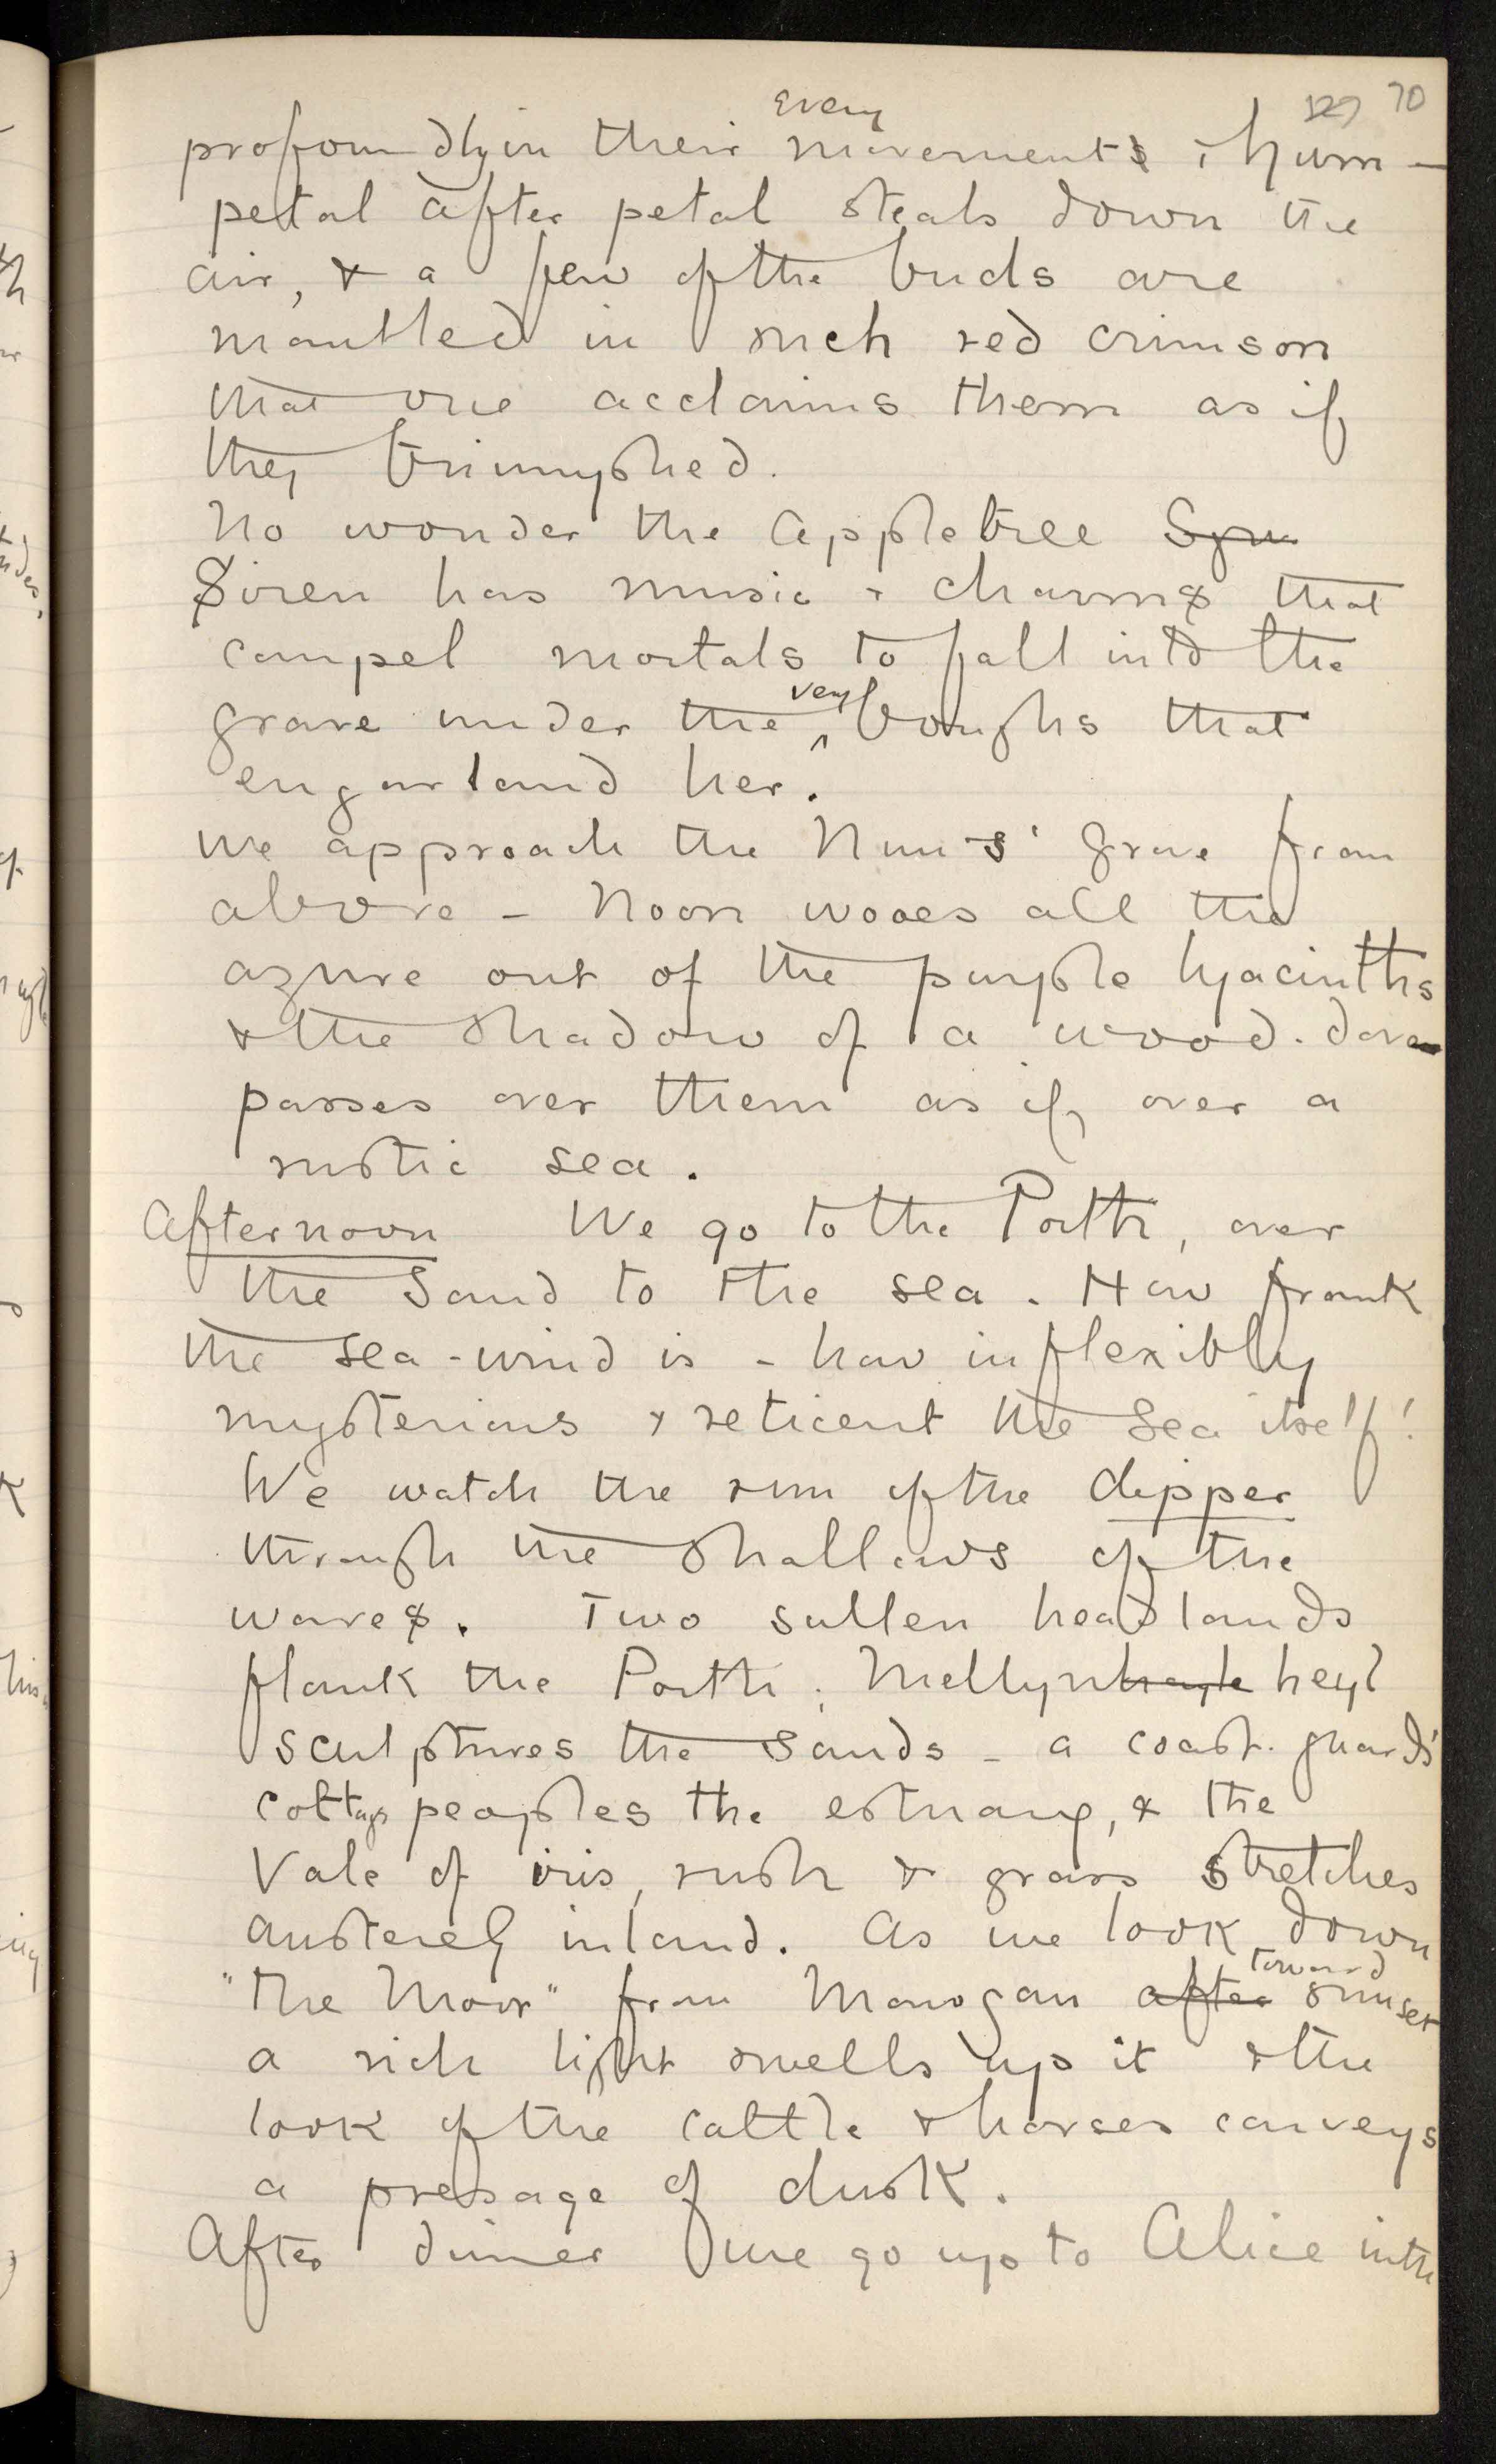 127 70
every
profoundly in their movements & hum —
petal after petal steals down the
air, & a few of the buds are
mantled in such red crimson
that one acclaims them as if
they triumphed.
No wonder the Appletree Syre
Siren has music & charms that
compel mortals to fall into the
grave under the ^ very boughs that
engarland her.
We approach the Nuns' Grave from
above – Noon wooes all the
azure out of the purple hyacinths
& the shadow of a wood-dove
passes over them as if over a
rustic sea.
Afternoon We go to the Porth, over
the Sand to the sea. How frank
the sea-wind is – how inflexibly
mysterious & reticent the Sea itself!
We watch the run of the dipper
through the shallows of the
waves. Two sullen headlands
flank the Porth; Mellynhayle heyl
sculptures the sands – a coast-guards'
cottage peoples the estuary, & the
Vale of iris, rush & grass stretches
austerely inland. As we look down
"The Moor" from Manogan after toward sunset
a rich light swells up it & the
look of the cattle & horses conveys
a presage of dusk.
After dinner we go up to Alice in the